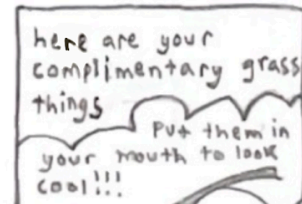 here are your
complimentary grass
things
Put them in
your mouth to look
cool!!!